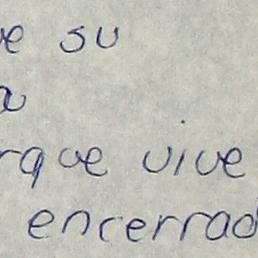 e su
a
rque vive
encerrad